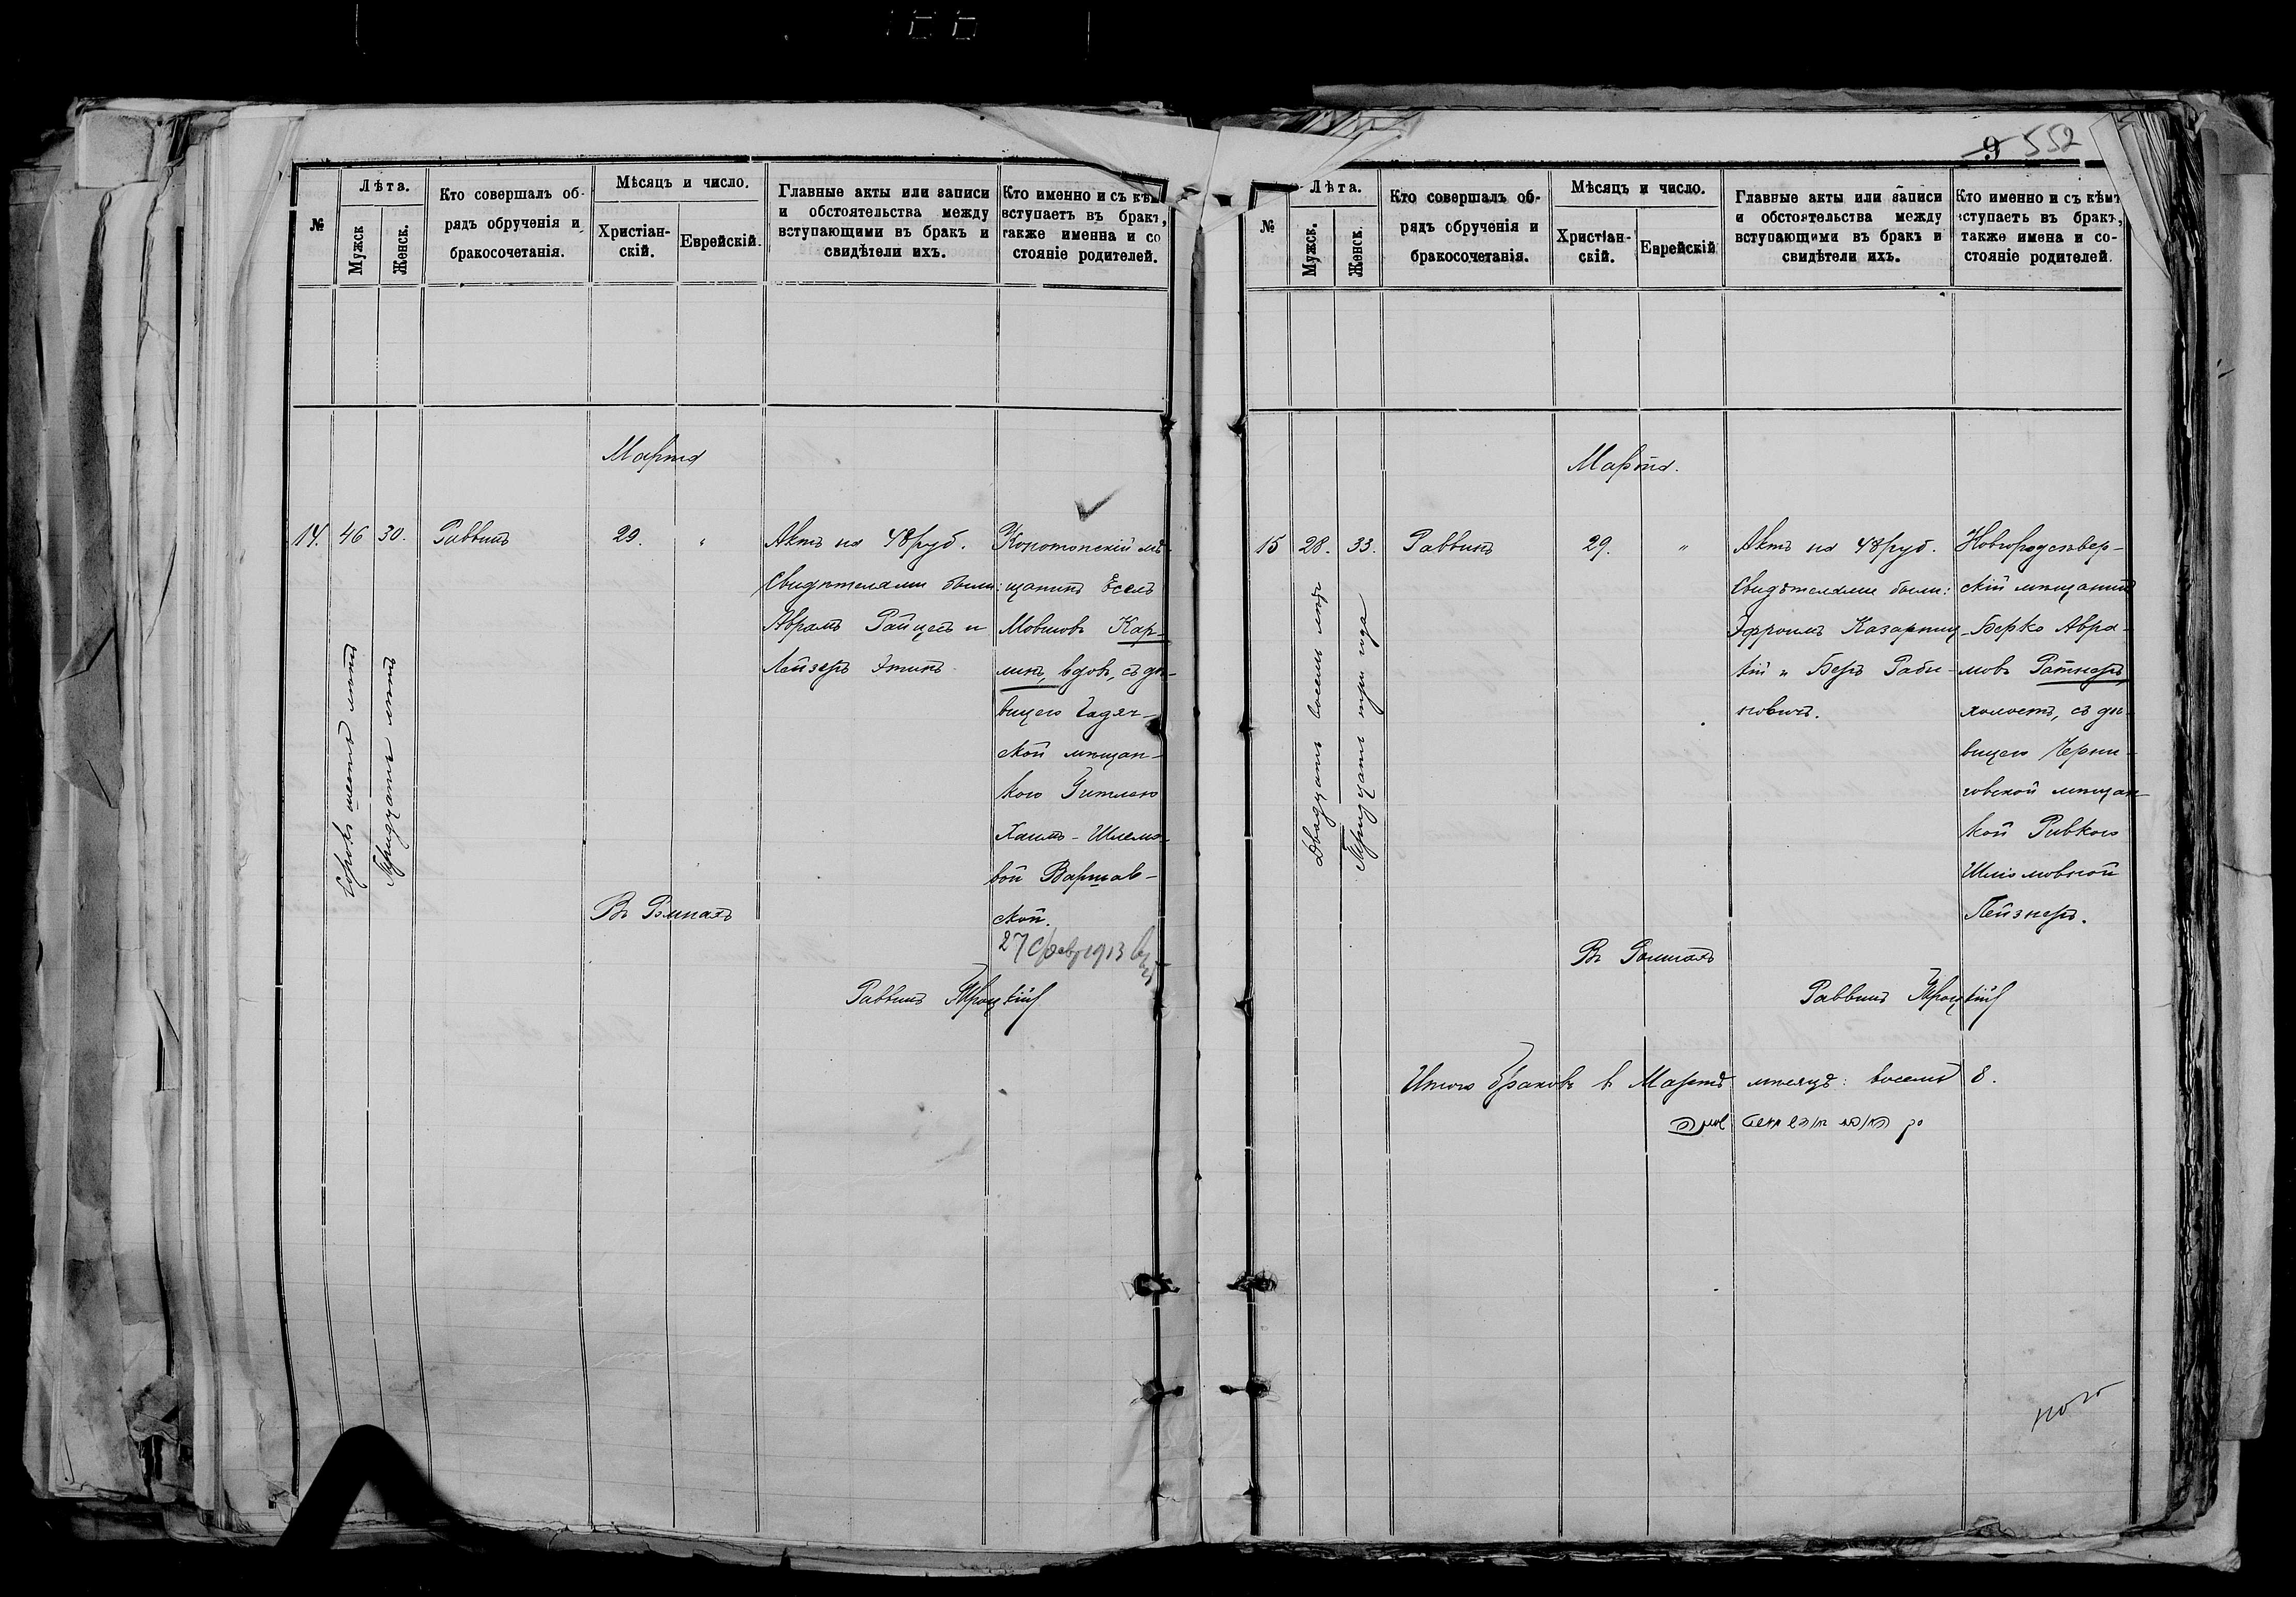 №
Лѣта.
Мужск
Женск.
Кто совершалъ об-
рядъ обрученія и
бракосочетанія.
Мѣсяцъ и число.
Христіан-
скій.
Еврейскій.
Главные акты или записи
и обстоятельства между
вступающими въ бракъ и
свидѣтели ихъ.
Кто именно и съ кѣмъ
вступаетъ въ бракъ,
также имена и со
стояніе родителей.
Марта
14. 46 30. Раввинъ 29. "
Сорокъ шесть лѣтъ
Тридцать лѣтъ
Актъ на 48 руб.
Свидѣтелями были:
Абрамъ Райцесъ и
Лейзеръ Этинъ
Конотопскій мѣ-
щанинъ Есель
Мовшовъ Кар-
линъ, вдов, съ дѣ-
вицею Гадяч-
ской мѣщан-
кою Гитлею
Хаимъ-Шлемо-
вой Варшав-
ской.
Въ Ромнахъ
27 февр 1913
Раввинъ Троцкій
9 552
№
Лѣта.
Мужск.
Женск.
Кто совершалъ об-
рядъ обрученія и
бракосочетанія.
Мѣсяцъ и число.
Христіан-
скій.
Еврейскій
Главные акты или записи
и обстоятельства между
вступающими въ бракъ и
свидѣтели ихъ.
Кто именно и съ кѣмъ
вступаетъ въ бракъ,
также имена и со-
стояніе родителей.
Марта.
15 28. 33. Раввинъ 29. "
Двадцать восемь лѣтъ
Тридцать три года
Актъ на 48 руб.
Свидѣтелями были:
Эфроимъ Казарниц-
кій и Беръ Раби-
новичъ.
Новгородсѣвер-
скій мѣщанинъ
Берко Абра-
мовъ Ратнеръ,
холостъ, съ дѣ-
вицею Черни-
говской мѣщан-
кой Ривкою
Шліомовной
Пейзнеръ.
Въ Ромнахъ
Раввинъ Троцкій
Итого браковъ в Мартѣ мѣсяцѣ: восемь 8.